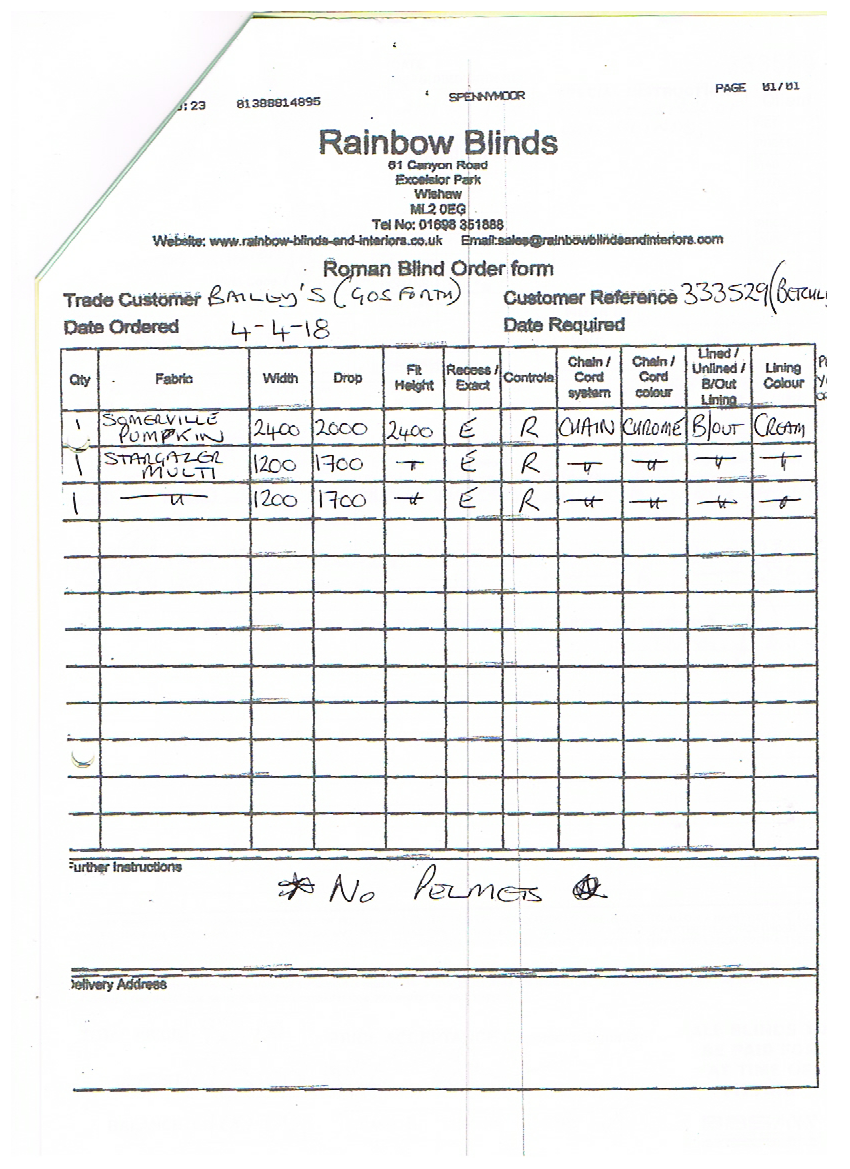 :23 01388814895 SPENNYMOOR PAGE 01/01
Rainbow Blinds
61 Canyon Road
Excelsior Park
Wishaw
ML2 0EG
Tel No: 01698 351888
Website: www.rainbow-blinds-and-interiors.co.uk Email:sales@rainbowblindsandinteriors.com
Roman Blind Order form
Trade Customer BAILEY'S (GOSFORTH) Customer Reference 333529
Date Ordered 4-4-18 Date Required
Qty Fabric Width Drop Fit Height Recess / Exact Controls Chain / Cord system Chain / Cord colour Lined / Unlined / B/Out Lining Lining Colour
1 SOMERVILLE PUMPKIN 2400 2000 2400 E R CHAIN CHROME B/OUT CREAM
1 STARGAZER MULTI 1200 1700 —"— E R —"— —"— —"— —"—
1 —"— 1200 1700 —"— E R —"— —"— —"— —"—
Further Instructions
* NO PELMETS *
Delivery Address